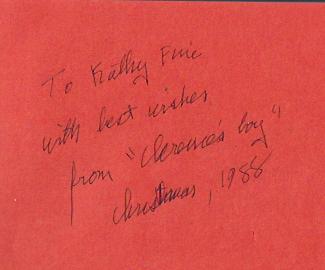 To Kathy
with best wishes
from "Clarence's boy"
Christmas, 1988